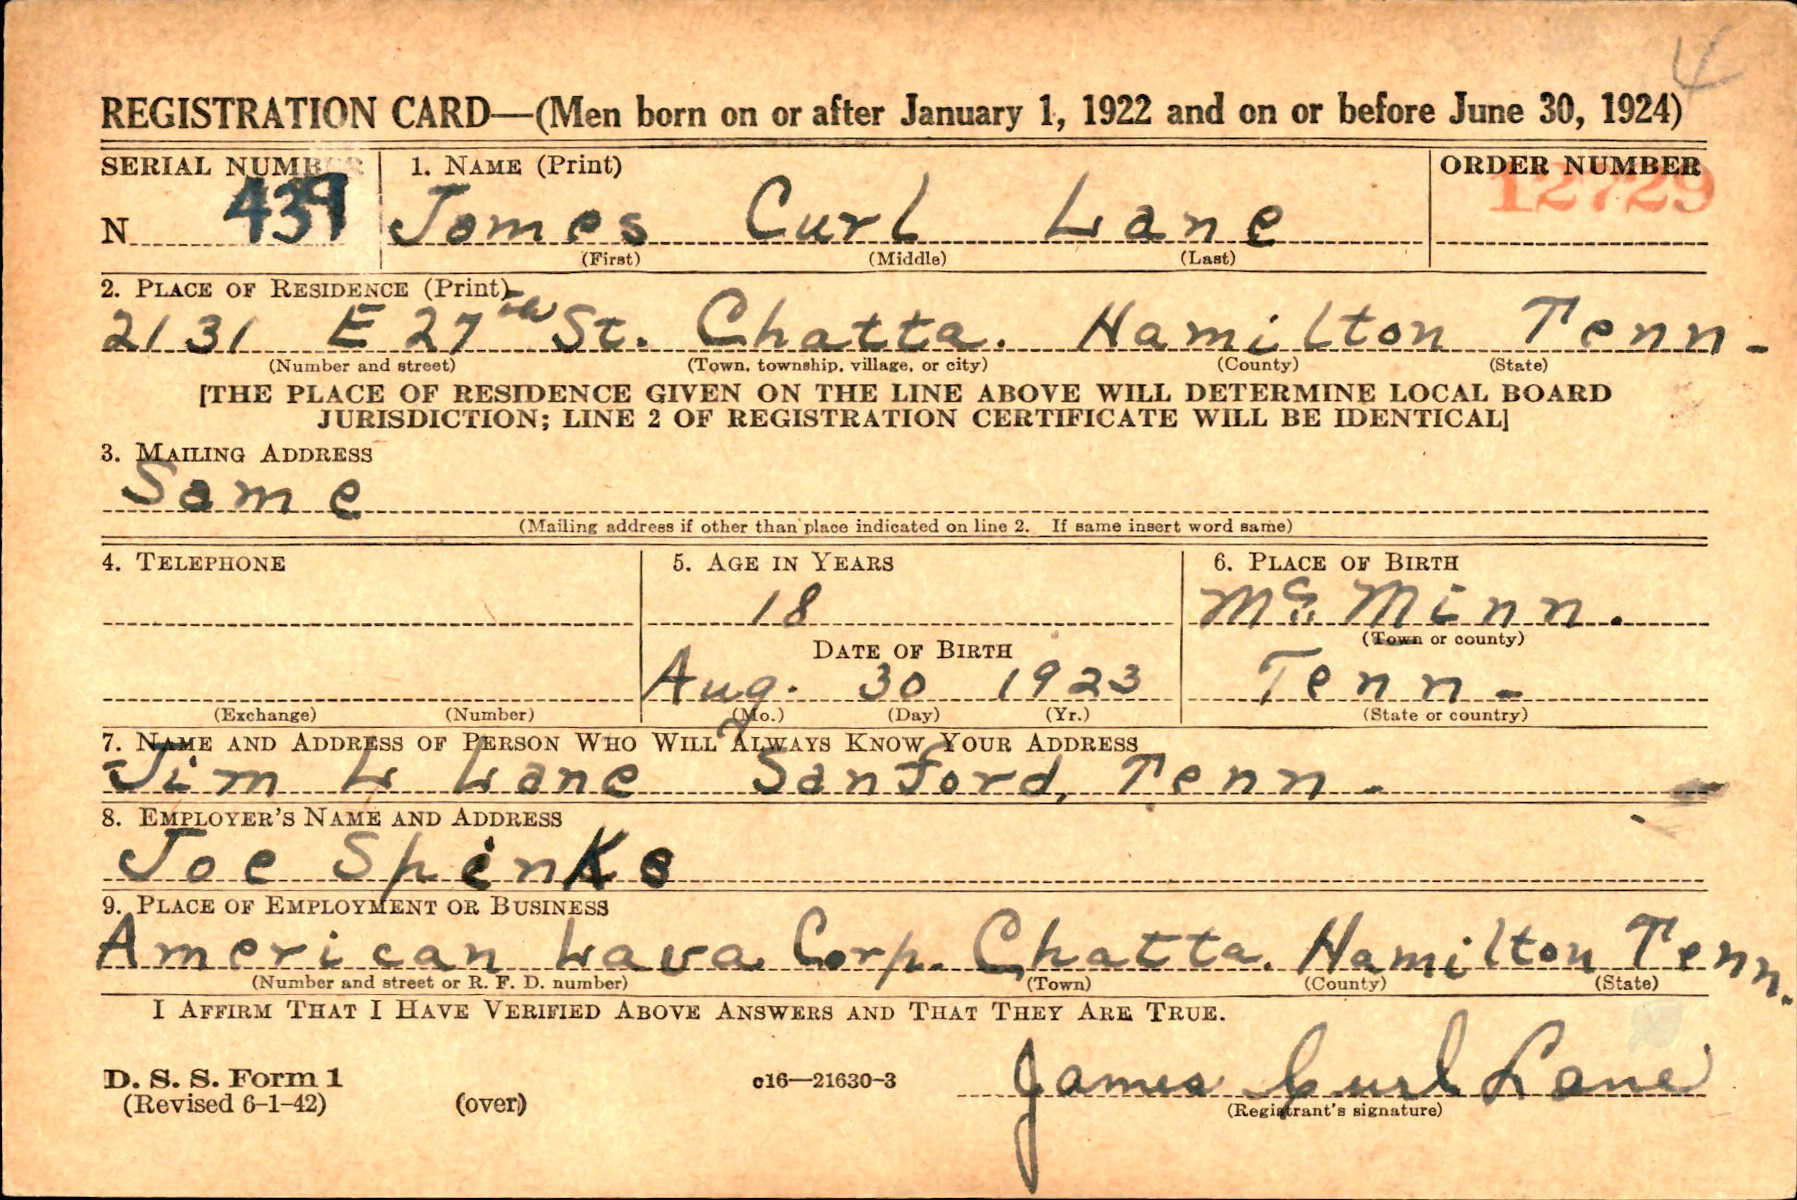 REGISTRATION CARD—(Men born on or after January 1, 1922 and on or before June 30, 1924)
SERIAL NUMBER 1. NAME (Print) ORDER NUMBER
N 439 James Curl Lane 12729
(First) (Middle) (Last)
2. PLACE OF RESIDENCE (Print)
2131 E 27th St. Chatta. Hamilton Tenn-
(Number and street) (Town, township, village, or city) (County) (State)
[THE PLACE OF RESIDENCE GIVEN ON THE LINE ABOVE WILL DETERMINE LOCAL BOARD
JURISDICTION; LINE 2 OF REGISTRATION CERTIFICATE WILL BE IDENTICAL]
3. MAILING ADDRESS
Same
(Mailing address if other than place indicated on line 2. If same insert word same)
4. TELEPHONE 5. AGE IN YEARS 6. PLACE OF BIRTH
18 Mc Minn.
DATE OF BIRTH (Town or county)
Aug. 30 1923 Tenn-
(Exchange) (Number) (Mo.) (Day) (Yr.) (State or country)
7. NAME AND ADDRESS OF PERSON WHO WILL ALWAYS KNOW YOUR ADDRESS
Jim L Lane Sanford, Tenn-
8. EMPLOYER'S NAME AND ADDRESS
Joe Spinks
9. PLACE OF EMPLOYMENT OR BUSINESS
American Lava Corp. Chatta. Hamilton Tenn.
(Number and street or R. F. D. number) (Town) (County) (State)
I AFFIRM THAT I HAVE VERIFIED ABOVE ANSWERS AND THAT THEY ARE TRUE.
D. S. S. Form 1
(Revised 6-1-42) (over) c16—21630-3 James Curl Lane
(Registrant's signature)